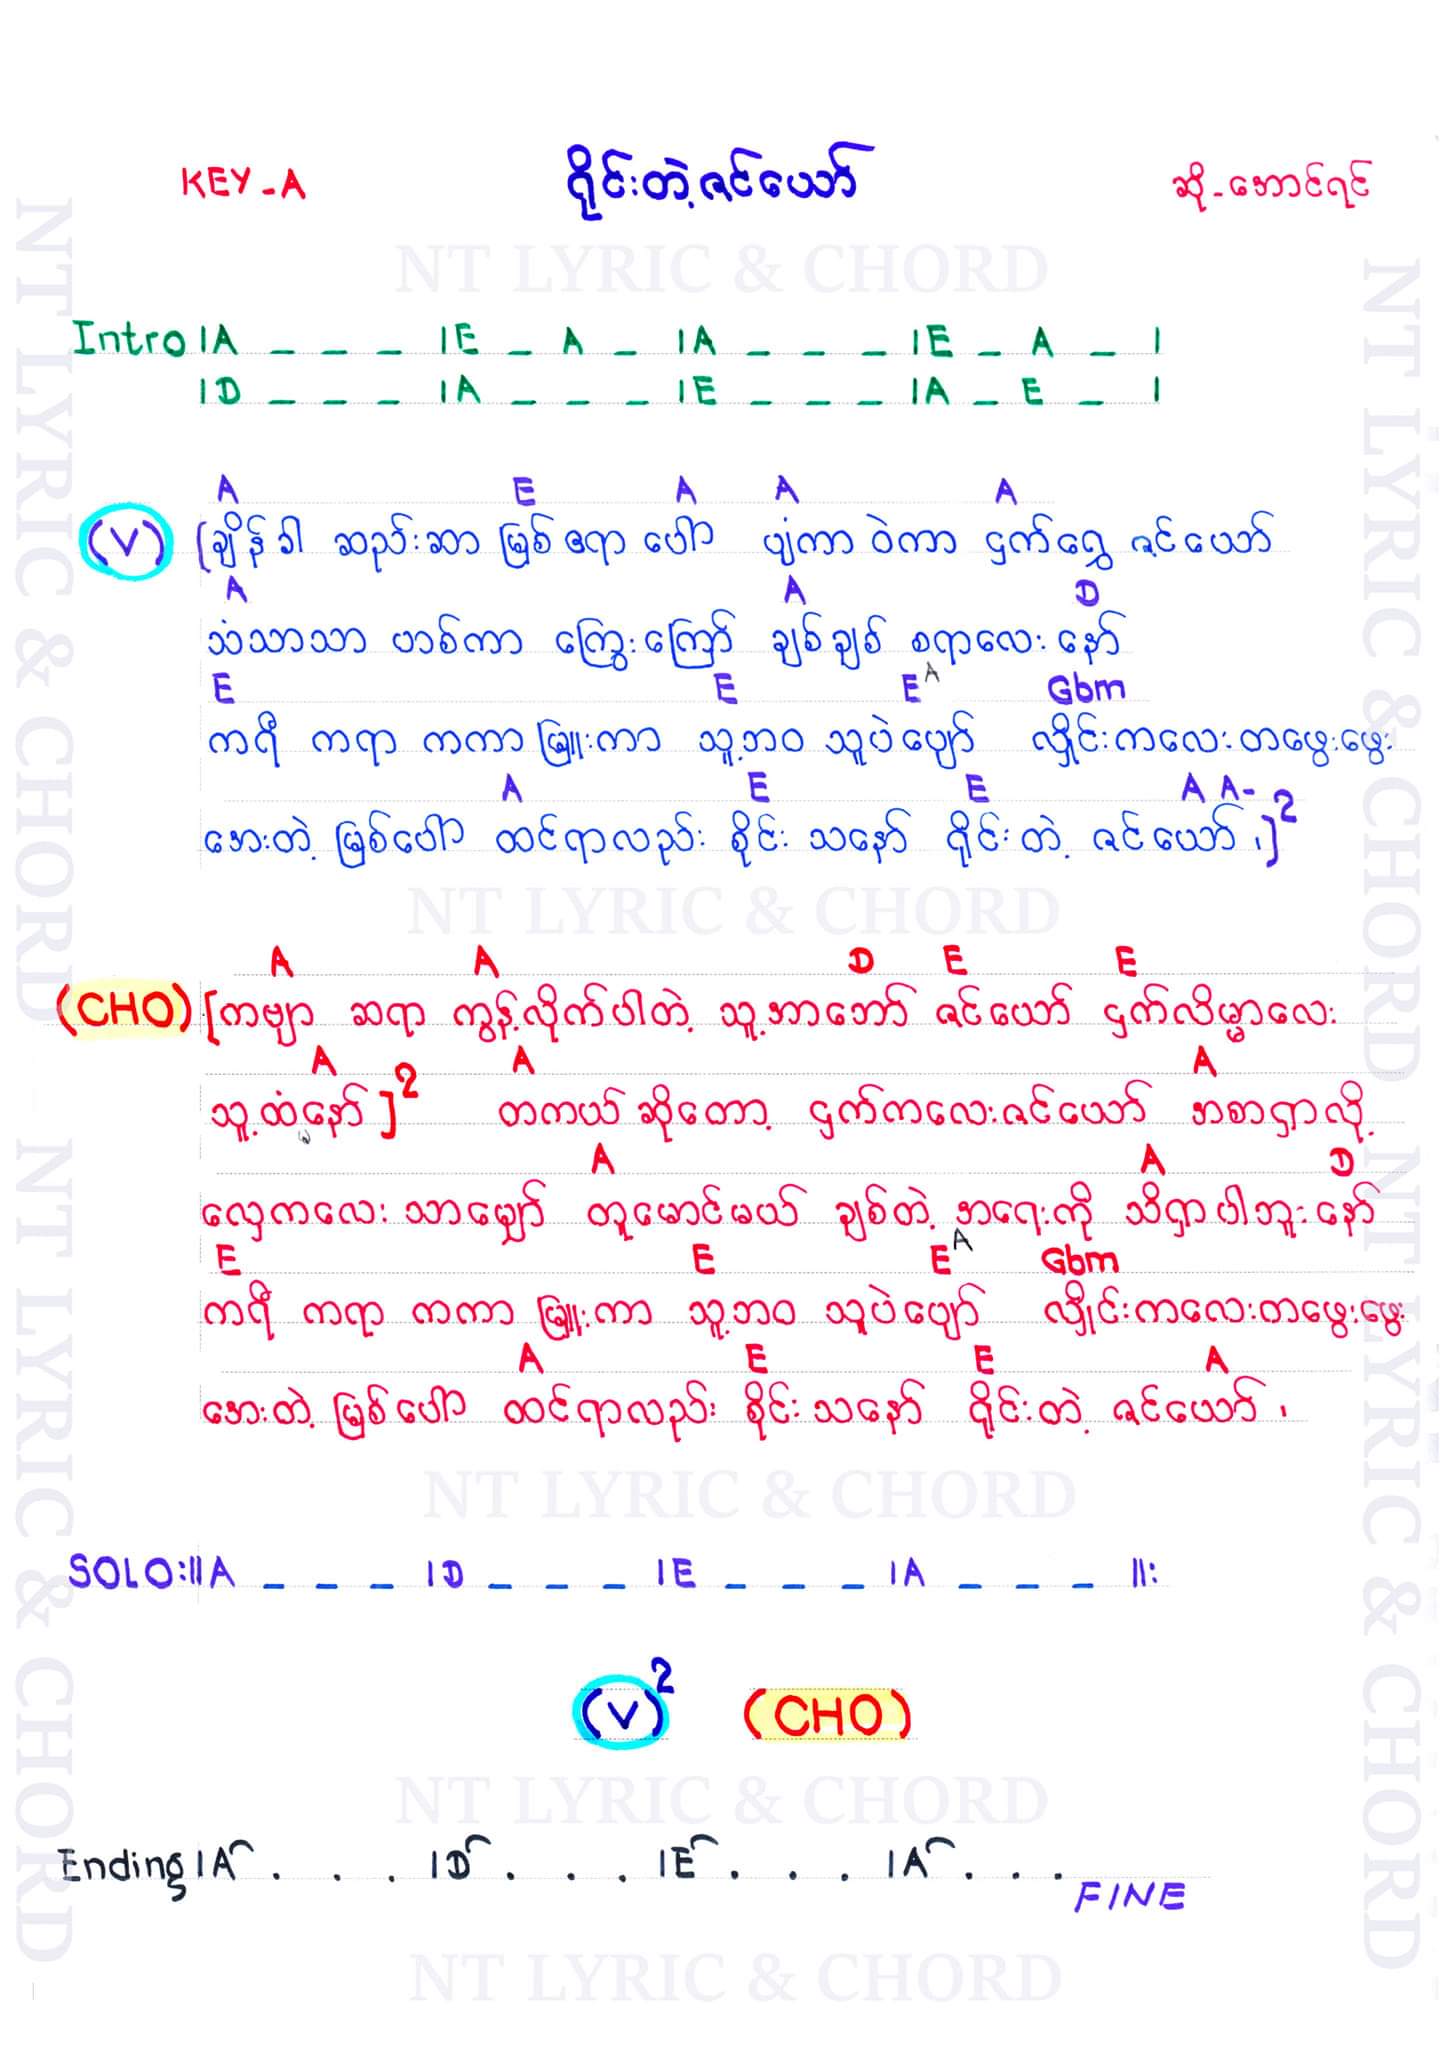 KEY - A
ဂိုင်းတဲ့ဇင်ယော်
ဆို - အောင်ရင်
NT LYRIC & CHORD
Intro |A _ _ _ |E _ A _ |A _ _ _ |E _ A _ |
|D _ _ _ |A _ _ _ |E _ _ _ |A _ E _ |
A E A A A
(V) [ချိန်ခါ ဆည်းဆာ မြစ်ဧရာ ပေါ် ပျံကာ ဝဲကာ ငှက်ရွှေ ဇင်ယော်
A A D
သံသာသာ ဟစ်ကာ ကြွေးကြော် ချစ်ချစ် စရာလေး နော်
E E E A Gbm
ကရီ ကရာ ကကာ မြူးကာ သူ့ဘဝ သူပဲပျော် လှိုင်းကလေးတဖွေးဖွေး
A E E A A-
အေးတဲ့ မြစ်ပေါ် ထင်ရာလည်း စိုင်း သနော် ဂိုင်း တဲ့ ဇင်ယော် ၊]2
NT LYRIC & CHORD
A A D E E
(CHO) [ကဗျာ ဆရာ ကွန့်လိုက်ပါတဲ့ သူ့အာဘော် ဇင်ယော် ငှက်လိမ္မာလေး
A A A
သူ့ထံနော် ]2 တကယ် ဆိုတော့ ငှက်ကလေးဇင်ယော် အစာရှာလို့
A A D
လှေကလေး သာမျှော် တူမောင်မယ် ချစ်တဲ့ အရေးကို သိရှာပါဘူးနော်
E E E A Gbm
ကရီ ကရာ ကကာ မြူးကာ သူ့ဘဝ သူပဲပျော် လှိုင်းကလေးတဖွေးဖွေး
A E E A
အေးတဲ့ မြစ်ပေါ် ထင်ရာလည်း စိုင်းသနော် ဂိုင်းတဲ့ ဇင်ယော် ၊
NT LYRIC & CHORD
SOLO:||A _ _ _ |D _ _ _ |E _ _ _ |A _ _ _ ||:
(V)2 (CHO)
NT LYRIC & CHORD
Ending |A . . . |D . . . |E . . . |A . . .
FINE
NT LYRIC & CHORD
NT LYRIC & CHORD NT LYRIC & CHORD
NT LYRIC & CHORD NT LYRIC & CHORD